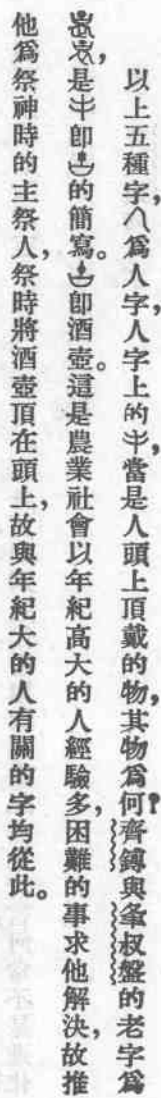 以上五種字，人爲人字，人字上的⺷，當是人頭上頂戴的物，其物爲何？齊鎛與夆叔盤的老字爲
，是⺷卽的簡寫。卽酒壺。這是農業社會以年紀高大的人經驗多，困難的事求他解決，故推
他爲祭神時的主祭人，祭時將酒壺頂在頭上，故與年紀大的人有關的字均從此。